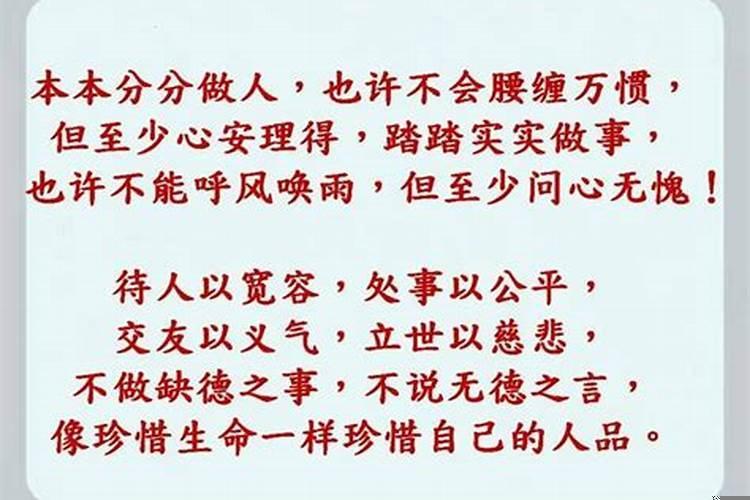 本本分分做人，也许不会腰缠万惯，
但至少心安理得，踏踏实实做事，
也许不能呼风唤雨，但至少问心无愧！
待人以宽容，处事以公平，
交友以义气，立世以慈悲，
不做缺德之事，不说无德之言，
像珍惜生命一样珍惜自己的人品。